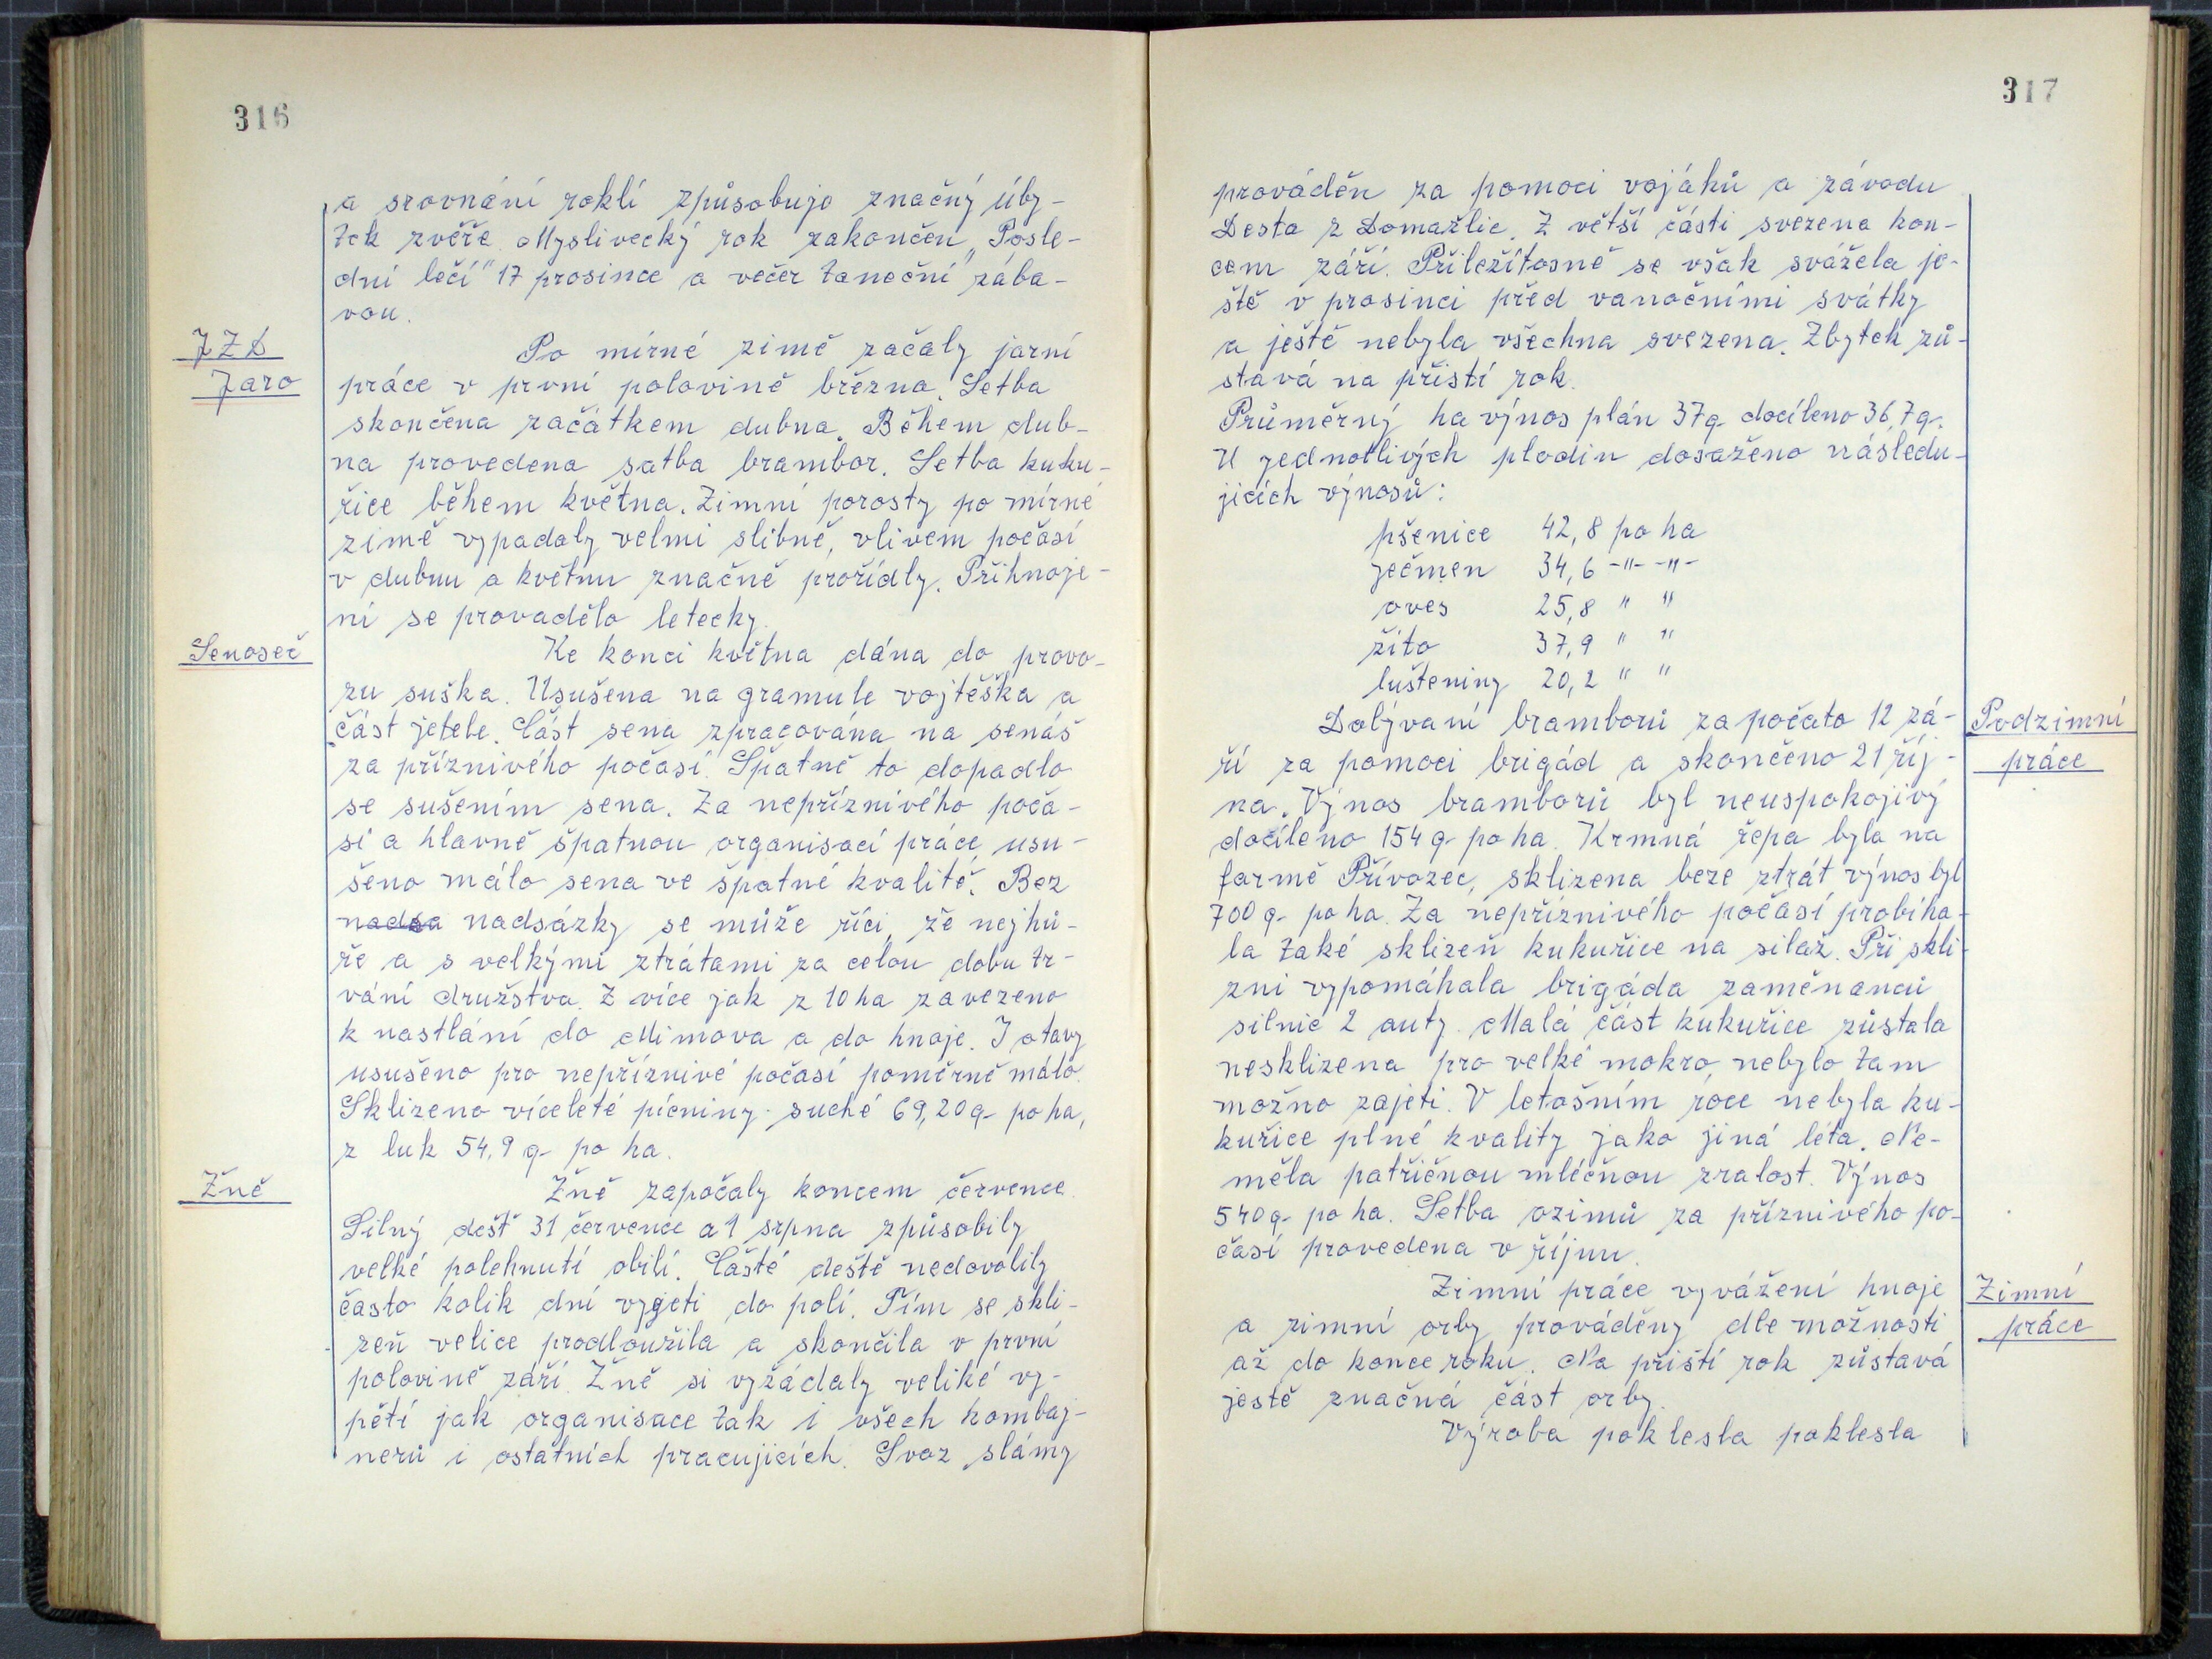 316
a srovnání roklí způsobuje značný úby-
tek zvěře. Myslivecký rok zakončen „Posle-
dní lečí" 17 prosince a večer taneční zába-
vou.
JZD
Jaro
Po mírné zimě začaly jarní
práce v první polovině března. Setba
skončena začátkem dubna. Během dub-
na provedena satba brambor. Setba kuku-
řice během května. Zimní porosty po mírné
zimě vypadaly velmi slibně, vlivem počasí
v dubnu a květnu značně prořídly. Přihnoje-
ní se provadělo letecky.
Senoseč
Ke konci května dána do provo-
zu suška. Usušena na gramule vojtěška a
část jetele. Část sena zpracována na senáš
za příznivého počasí. Špatně to dopadlo
se sušením sena. Za nepříznivého poča-
sí a hlavně špatnou organisací práce usu-
šeno málo sena ve špatné kvalitě. Bez
nadsa nadsázky se může říci, že nejhů-
ře a s velkými ztrátami za celou dobu tr-
vání družstva. Z více jak z 10 ha zavezeno
k nastlání do Mimova a do hnoje. I otavy
usušeno pro nepříznivé počasí poměrně málo.
Sklizeno víceleté pícniny suché 69,20 q po ha,
z luk 54,9 q po ha.
Žně
Žně započaly koncem července.
Silný dešť 31 července a 1 srpna způsobily
velké polehnutí obilí. Časté deště nedovolily
často kolik dní vyjeti do polí. Tím se skli-
zeň velice prodloužila a skončila v první
polovině září. Žně si vyžádaly veliké vy-
pětí jak organisace tak i všech kombaj-
nerů i ostatních pracujících. Svoz slámy
317
prováděn za pomoci vojáků a závodu
Desta z Domažlic. Z větší části svezena kon-
cem září. Příležitosně se však svážela je-
ště v prosinci před vanočními svátky
a ještě nebyla všechna svezena. Zbytek zů-
stavá na přistí rok.
Průměrný ha výnos plán 37 q docíleno 36,7 q.
U jednotlivých plodin dosaženo následu-
jicích výnosů:
pšenice 42,8 po ha
ječmen 34,6 -"- -"-
oves 25,8 " "
žito 37,9 " "
luštening 20,2 " "
Podzimní
práce
Dobývaní bramborů započato 12 zá-
ří za pomoci brigád a skončeno 21 říj-
na. Výnos bramborů byl neuspokojivý
docíleno 154 q po ha. Krmná řepa byla na
farmě Přívozec, sklizena beze ztrát výnos byl
700 q po ha. Za nepříznivého počasí probíha-
la také sklizeň kukuřice na silaž. Při skli-
zni vypomáhala brigáda zaměnanců
silnic 2 auty. Malá část kukuřice zůstala
nesklizena pro velké mokro, nebylo tam
možno zajeti. V letošním roce nebyla ku-
kuřice plné kvality jako jiná léta. Ne-
měla patřičnou mléčnou zralost. Výnos
540 q po ha. Setba ozimů za příznivého po-
časí provedena v říjnu.
Zimní
práce
Zimní práce vyvážení hnoje
a zimní orby prováděny dle možnosti
až do konce roku. Na přistí rok zůstavá
jestě značná část orby.
Výroba poklesla poklesla